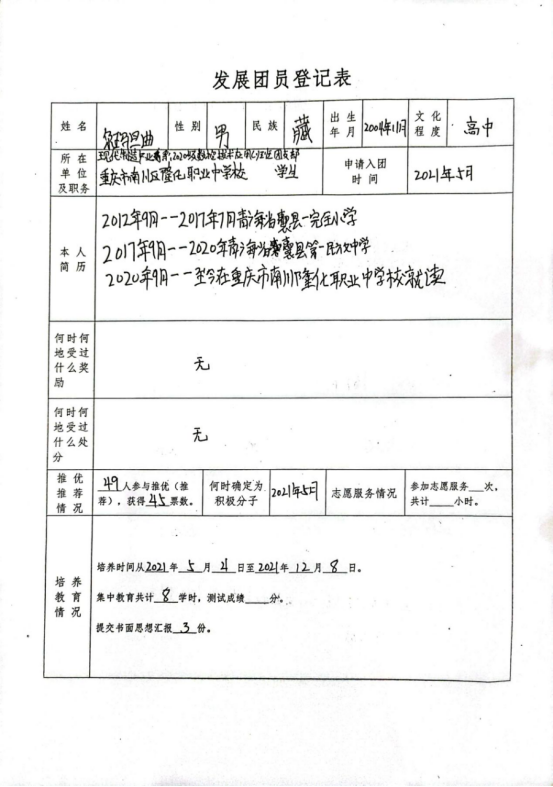 发展团员登记表
姓名 曲 性别 男 民族 藏 出生年月 2004年11月 文化程度 高中
所在单位及职务 重庆市南川区隆化职业中学校 学生 申请入团时间 2021年5月
本人简历
2012年9月--2017年7月青海省囊县一完全小学
2017年9月--2020年青海省囊县第一民族中学
2020年9月--至今在重庆市南川隆化职业中学校就读
何时何地受过什么奖励 无
何时何地受过什么处分 无
推优推荐情况 49人参与推优（推荐），获得45票数。 何时确定为积极分子 2021年5月 志愿服务情况 参加志愿服务___次，共计____小时。
培养教育情况
培养时间从2021年5月4日至2021年12月8日。
集中教育共计8学时，测试成绩____分。
提交书面思想汇报3份。